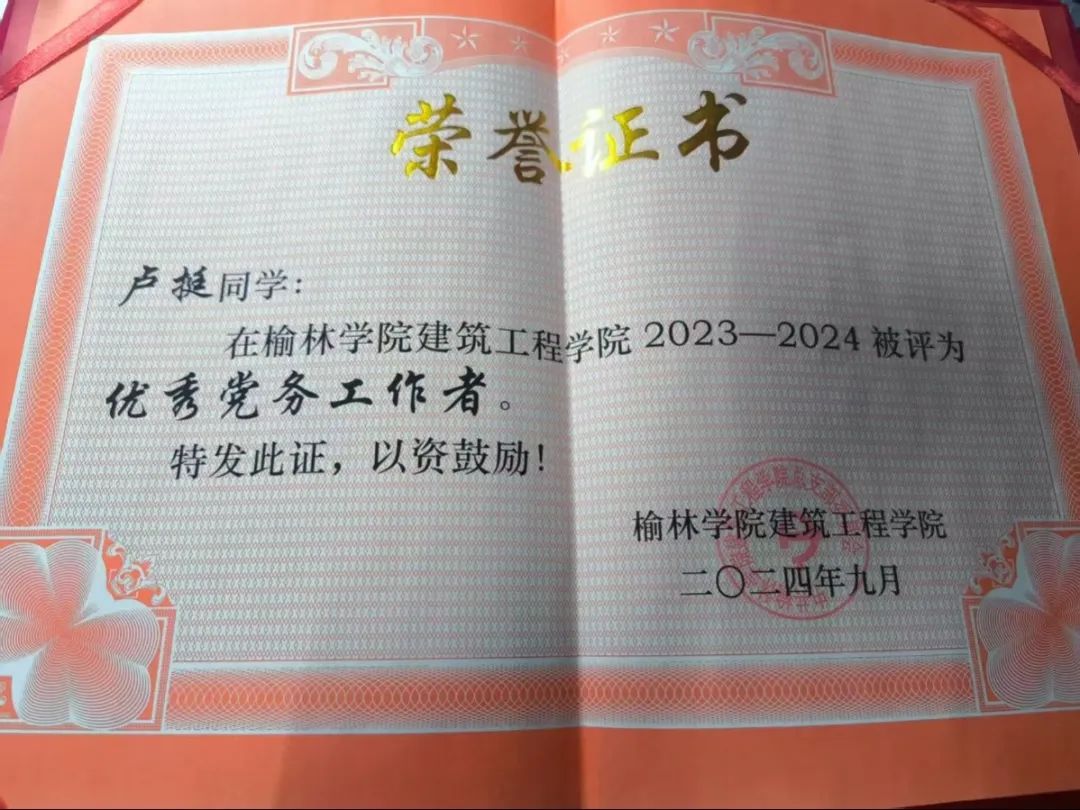 荣誉证书
卢挺同学:
在榆林学院建筑工程学院 2023—2024 被评为
优秀党务工作者。
特发此证，以资鼓励!
榆林学院建筑工程学院
二〇二四年九月